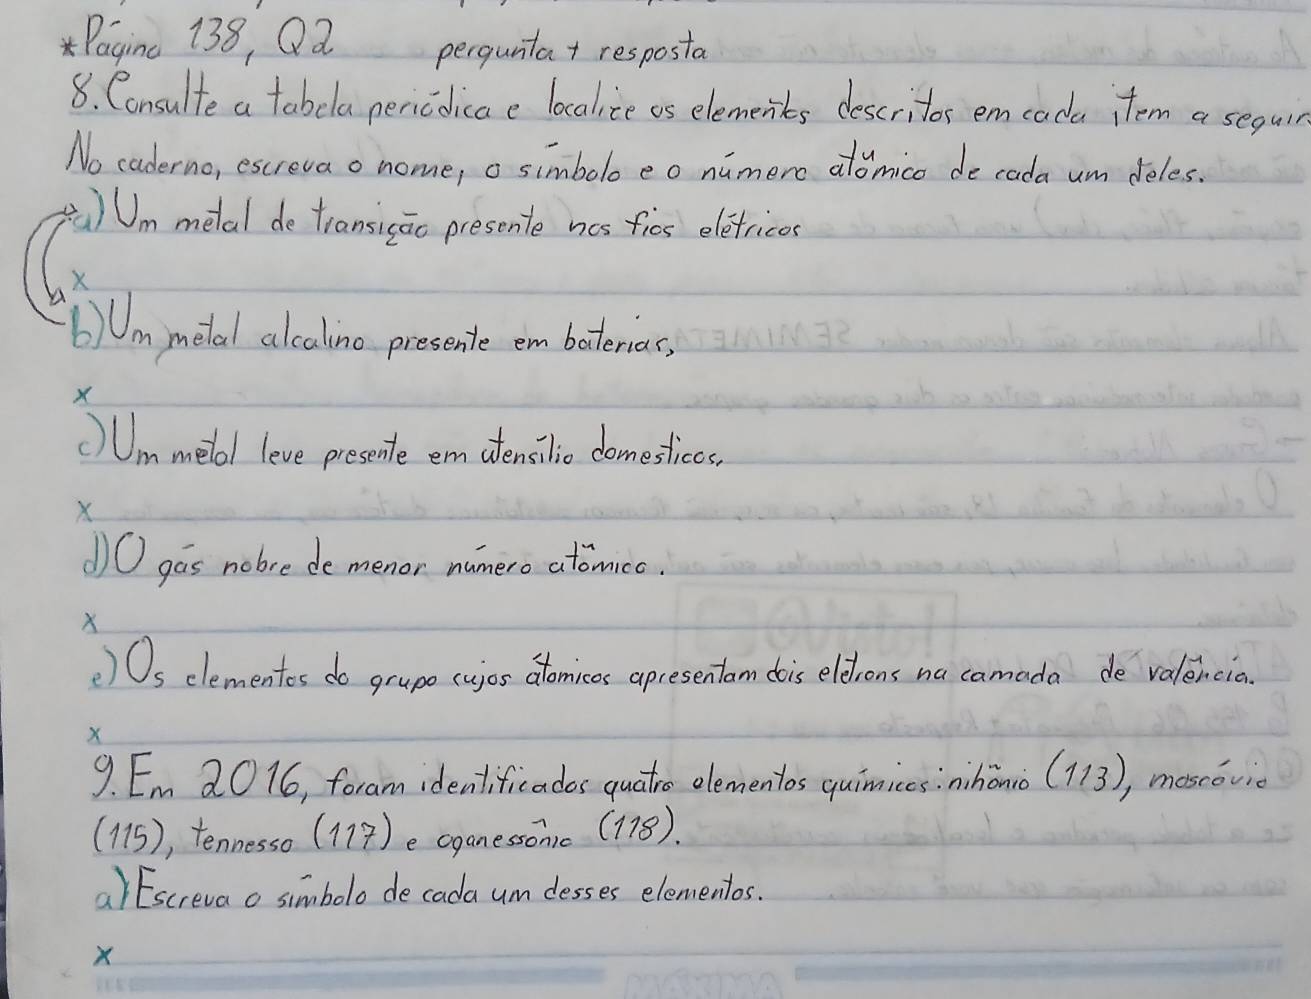 *Página 138, Q2 pergunta + resposta
8. Consulte a tabela periódica e localize os elementos descritos em cada item a seguir
No caderno, escreva o nome, o símbolo e o número atômico de cada um deles.
a) Um metal de transição presente nos fios elétricos
x
b) Um metal alcalino presente em baterias,
x
c) Um metal leve presente em utensílio domesticos,
x
d) O gás nobre de menor número atômico.
x
e) Os elementos do grupo cujos átomicos apresentam dois eletrons na camada de valência.
x
9. Em 2016, foram identificados quatro elementos químicos: nihônio (113), moscóvio
(115), tennesso (117) e oganessônio (118).
a) Escreva o símbolo de cada um desses elementos.
x
MÁXIMA